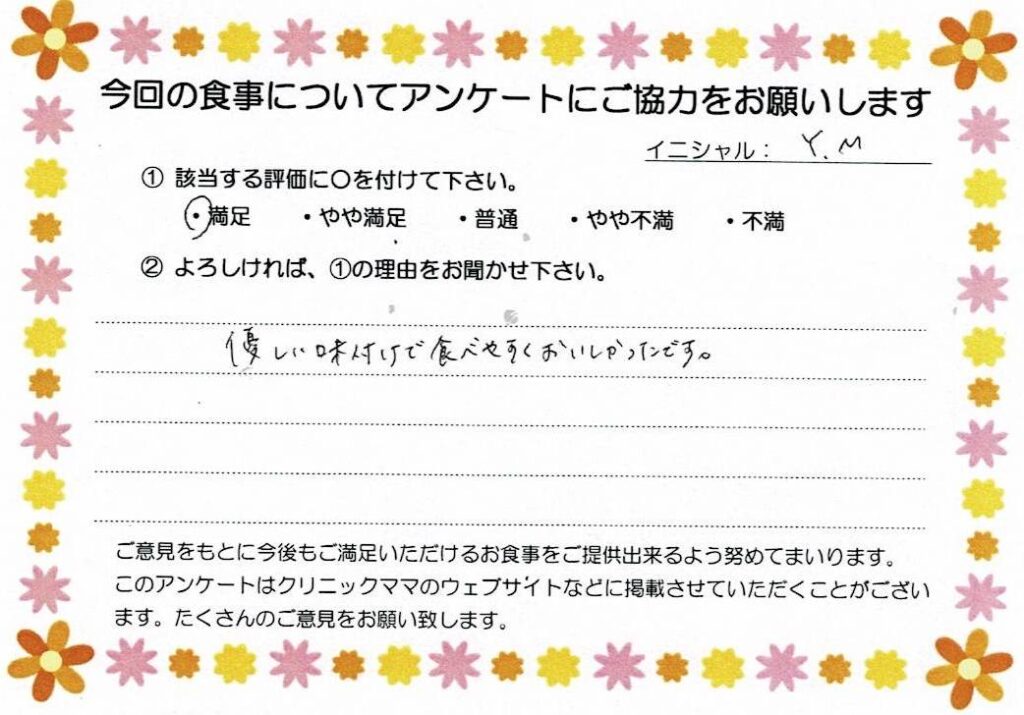 今回の食事についてアンケートにご協力をお願いします
イニシャル： Y.M
① 該当する評価に〇を付けて下さい。
・満足 ・やや満足 ・普通 ・やや不満 ・不満
② よろしければ、①の理由をお聞かせ下さい。
優しい味付けで食べやすくおいしかったです。
ご意見をもとに今後もご満足いただけるお食事をご提供出来るよう努めてまいります。
このアンケートはクリニックママのウェブサイトなどに掲載させていただくことがござい
ます。たくさんのご意見をお願い致します。